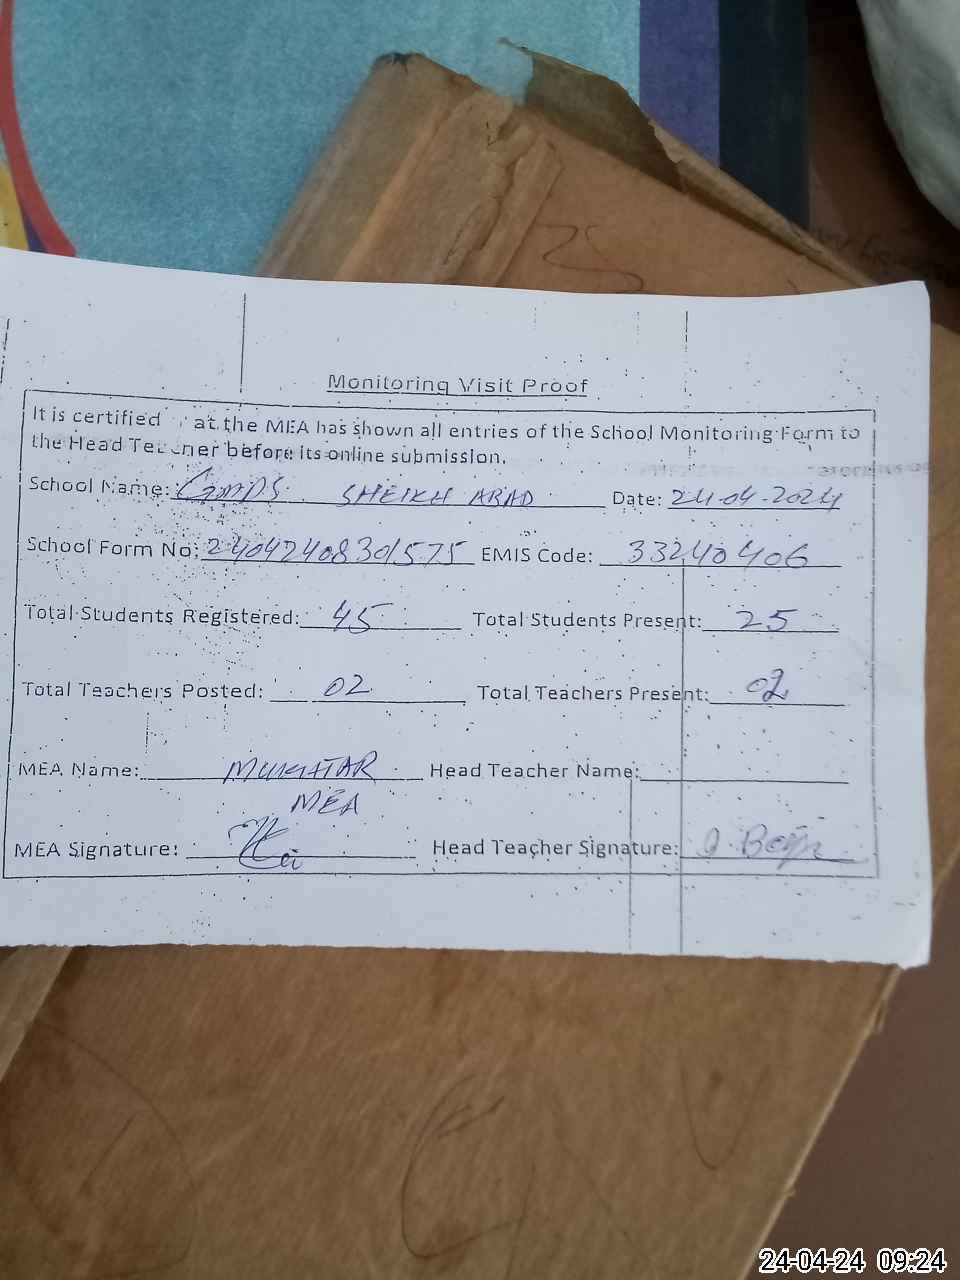 Monitoring Visit Proof
It is certified at the MEA has shown all entries of the School Monitoring Form to
the Head Teacher before its online submission.
School Name: GMPS SHEIKH ABAD Date: 24-04-2024
School Form No: 24042408301575 EMIS Code: 33240406
Total Students Registered: 45 Total Students Present: 25
Total Teachers Posted: 02 Total Teachers Present: 02
MEA Name: MUKHTAR Head Teacher Name:
MEA
MEA Signature: Head Teacher Signature:
24-04-24 09:24